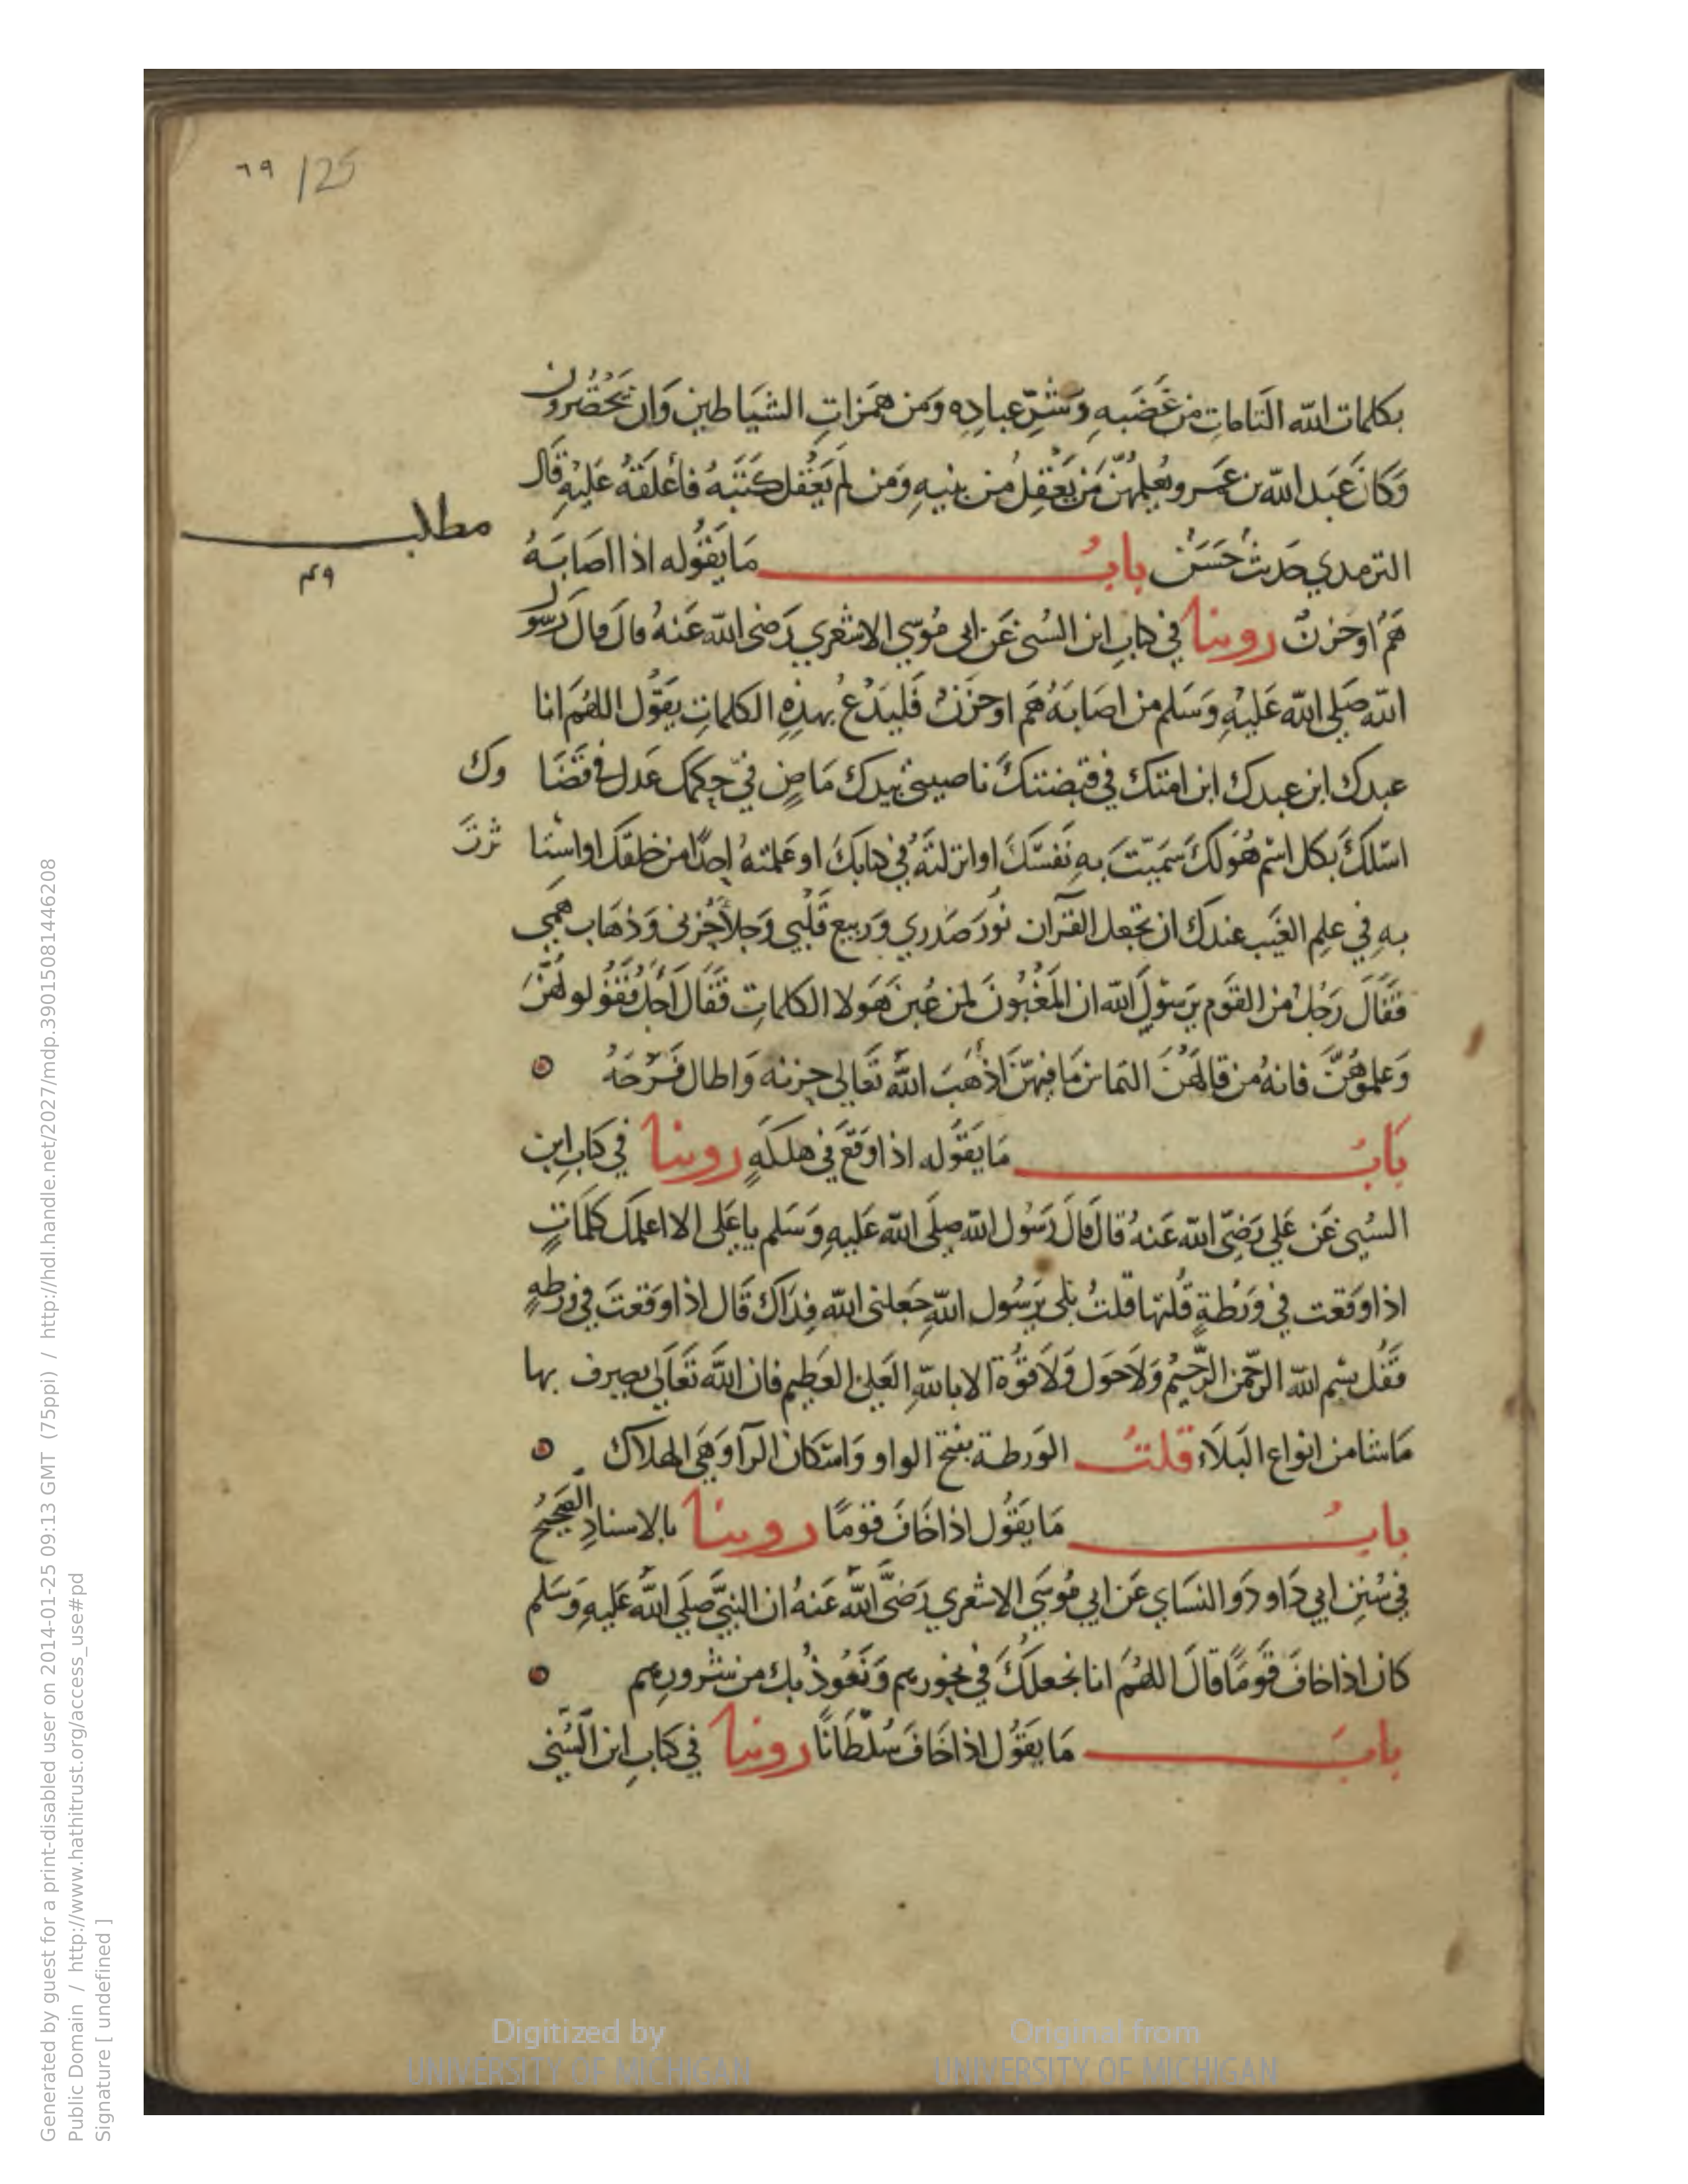 ٦٩ /25
بكلمات الله التامات من غَضَبهِ وَشرِّ عبادِه وَمن همَزاتِ الشيَاطين وَان يَحضرُون
وَكانَ عَبد الله بن عمَرو يُعلمُهنّ مَن يَعْقِل من بنيهِ وَمَن لم يَعْقل كتَبَهُ فأعلقَهُ عَليْهِ قَال
الترمدي حَديث حَسَن بابُ مَا يَقُوله اذا اصَابَهُ
مطلب
هَمٌ او حَزنٌ روينا في كتابِ ابن السُني عَن ابي مُوسي الاشعري رَضي الله عَنهُ قالَ قالَ رسُول
الله صَلي الله عَليْهِ وَسَلم من اصَابَهُ هَم او حَزَنٌ فَليَدْعُ بهذِهِ الكلماتِ يقَول اللهُمَ انا
عبدك ابن عبدك ابن امتك في قبضتك ناصيتي بيدك مَاضٍ فيّ حكمك عَدل في قَضَا وك
اسّلكَ بكل اسْم هُوَلكَ سَميّتَ بهِ نَفسَكَ او انزلتَهُ في كتابكَ او عَلمتهُ احدًا من خلقكَ او اسْتا ثرتَ
بهِ في علِم الغَيب عندك ان تجعل القرآن نُورَ صَدري وَربيع قَلْبي وَجلأ حُزني وَذهَاب همّي
فقَالَ رَجُل من القوَم يَرسوُلَ الله ان المَغْبُونَ لمن غُبنَ هَولا الكلماتِ فقَالَ أجَل فقُولوهُنَّ
وَعلموهُنَّ فانهُ من قالهَنُ التماسَ مَا فيهنّ اذْهَبَ اللهُ تعَالي حزنهَ وَاطال فَرَحَهُ
بَابُ مَا يَقوُله اذا وَقعَ في هلكَةٍ روينا في كتابِ ابن
السُني عَن عَلي رَضيّ الله عَنهُ قالَ قالَ رَسوُل الله صلَى الله عَليهِ وَسَلم يا عَلى الا اعلمك كلمَاتٍ
اذا وَقعت في وَرْطةٍ قُلتها قلتُ بَلى يَرسُول اللهِ جَعلني الله فِدَاكَ قَال اذا وَقعتَ في ورطةٍ
فقُل بسْم الله الرحمّن الرَّحيْم وَلاَحَول وَلاَ قوُّة الا باللهِ العَلىّ العَظيم فان اللهَ تعَالَى يصرف بها
مَا شا من انواع البَلَاء قلتُ الوَرطة بفتح الواو وَاسْكان الرآ وَهيَ الهلاك
بابُ مَا يقُول اذا خَافَ قوَمًا روينا بالاسنادِ الصَحيْح
في سُنن ابي دَاود وَ والنسَاي عَن ابي مُوسَي الاشعري رَضيَّ اللهُ عَنهُ ان النبيَّ صَلَي اللهُ عَليهِ وَسَلم
كان اذا خافَ قوَمًا قالَ اللهُمَ انا نجعلكَ في نحُورهم وَنعَوُذ بك من شرُورِهم
بابَ مَا يَقُول اذا خَافَ سُلطَانًا روينا في كتابِ ابن السُّني
Digitized by
UNIVERSITY OF MICHIGAN
Original from
UNIVERSITY OF MICHIGAN
Generated by guest for a print-disabled user on 2014-01-25 09:13 GMT (75ppi) / http://hdl.handle.net/2027/mdp.39015081446208
Public Domain / http://www.hathitrust.org/access_use#pd
Signature [ undefined ]